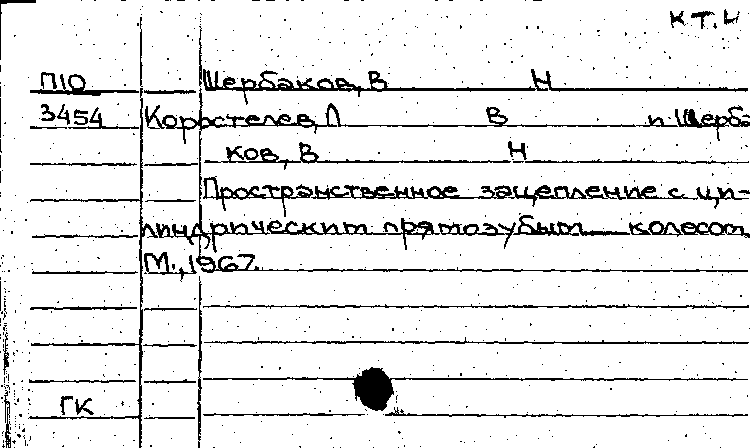 КТ.Ц
П10 Щербаков, В Н
3454 Коростелев, Л В и Щерба
ков, В Н
Пространственное зацепление с ци-
линдрическим прямозубым колесом,
М., 1967.
ГК